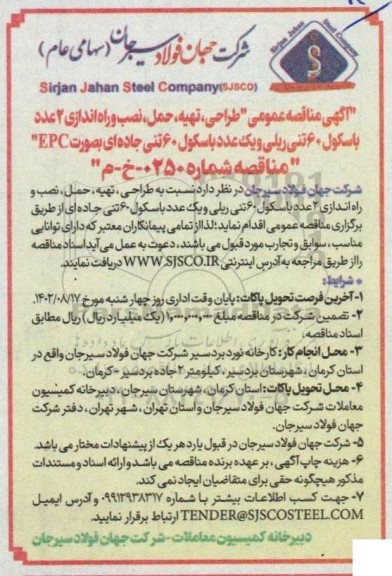 Sirjan Jahan
Steel Company
S
شرکت جهان فولاد سیرجان (سهامی عام)
Sirjan Jahan Steel Company(SJSCO)
"آگهی مناقصه عمومی "طراحی، تهیه، حمل، نصب و راه اندازی ۲ عدد
باسکول ۶۰ تنی ریلی و یک عدد باسکول ۶۰ تنی جاده ای بصورت EPC"
"مناقصه شماره ۰۲۵۰-خ-م"
شرکت جهان فولاد سیرجان در نظر دارد نسبت به طراحی، تهیه، حمل، نصب و
راه اندازی ۲ عدد باسکول ۶۰ تنی ریلی و یک عدد باسکول ۶۰ تنی جاده ای از طریق
برگزاری مناقصه عمومی اقدام نماید؛ لذا از تمامی پیمانکاران معتبر که دارای توانایی
مناسب، سوابق و تجارب مورد قبول می باشند، دعوت به عمل می آید اسناد مناقصه
را از طریق مراجعه به آدرس اینترنتی WWW.SJSCO.IR دریافت نمایند.
* شرایط:
۱- آخرین فرصت تحویل پاکات: پایان وقت اداری روز چهار شنبه مورخ ۱۴۰۲/۰۸/۱۷.
۲- تضمین شرکت در مناقصه مبلغ ۱,۰۰۰,۰۰۰,۰۰۰ (یک میلیارد ریال) ریال مطابق
اسناد مناقصه.
۳- محل انجام کار: کارخانه نورد بردسیر شرکت جهان فولاد سیرجان واقع در
استان کرمان، شهرستان بردسیر، کیلومتر ۲ جاده بردسیر - کرمان.
۴- محل تحویل پاکات: استان کرمان، شهرستان سیرجان، دبیرخانه کمیسیون
معاملات شرکت جهان فولاد سیرجان و استان تهران، شهر تهران، دفتر شرکت
جهان فولاد سیرجان.
۵- شرکت جهان فولاد سیرجان در قبول یا رد هر یک از پیشنهادات مختار می باشد.
۶- هزینه چاپ آگهی، بر عهده برنده مناقصه می باشد و ارائه اسناد و مستندات
مذکور هیچگونه حقی برای متقاضیان ایجاد نمی کند.
۷- جهت کسب اطلاعات بیشتر با شماره ۰۹۹۱۲۹۳۸۳۱۷ و آدرس ایمیل
TENDER@SJSCOSTEEL.COM ارتباط برقرار نمایید.
دبیرخانه کمیسیون معاملات-شرکت جهان فولاد سیرجان